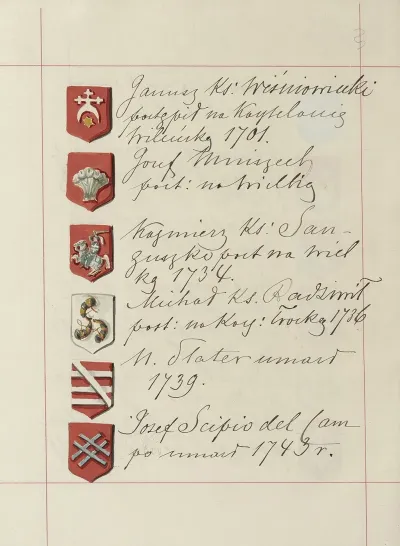 Janusz Ks: Wiśniowiecki
postąpił na Kasztelanię
Wileńską 1701.
Józef Mniszech
post: na Wielką
Kazimierz Ks: San-
guszko post na wiel
ką 1734.
Michał Ks. Radziwił
post: na Kasz: Trocką 1736
N. Plater umarł
1739.
Jozef Scipio del Cam-
po umarł 1743 r.